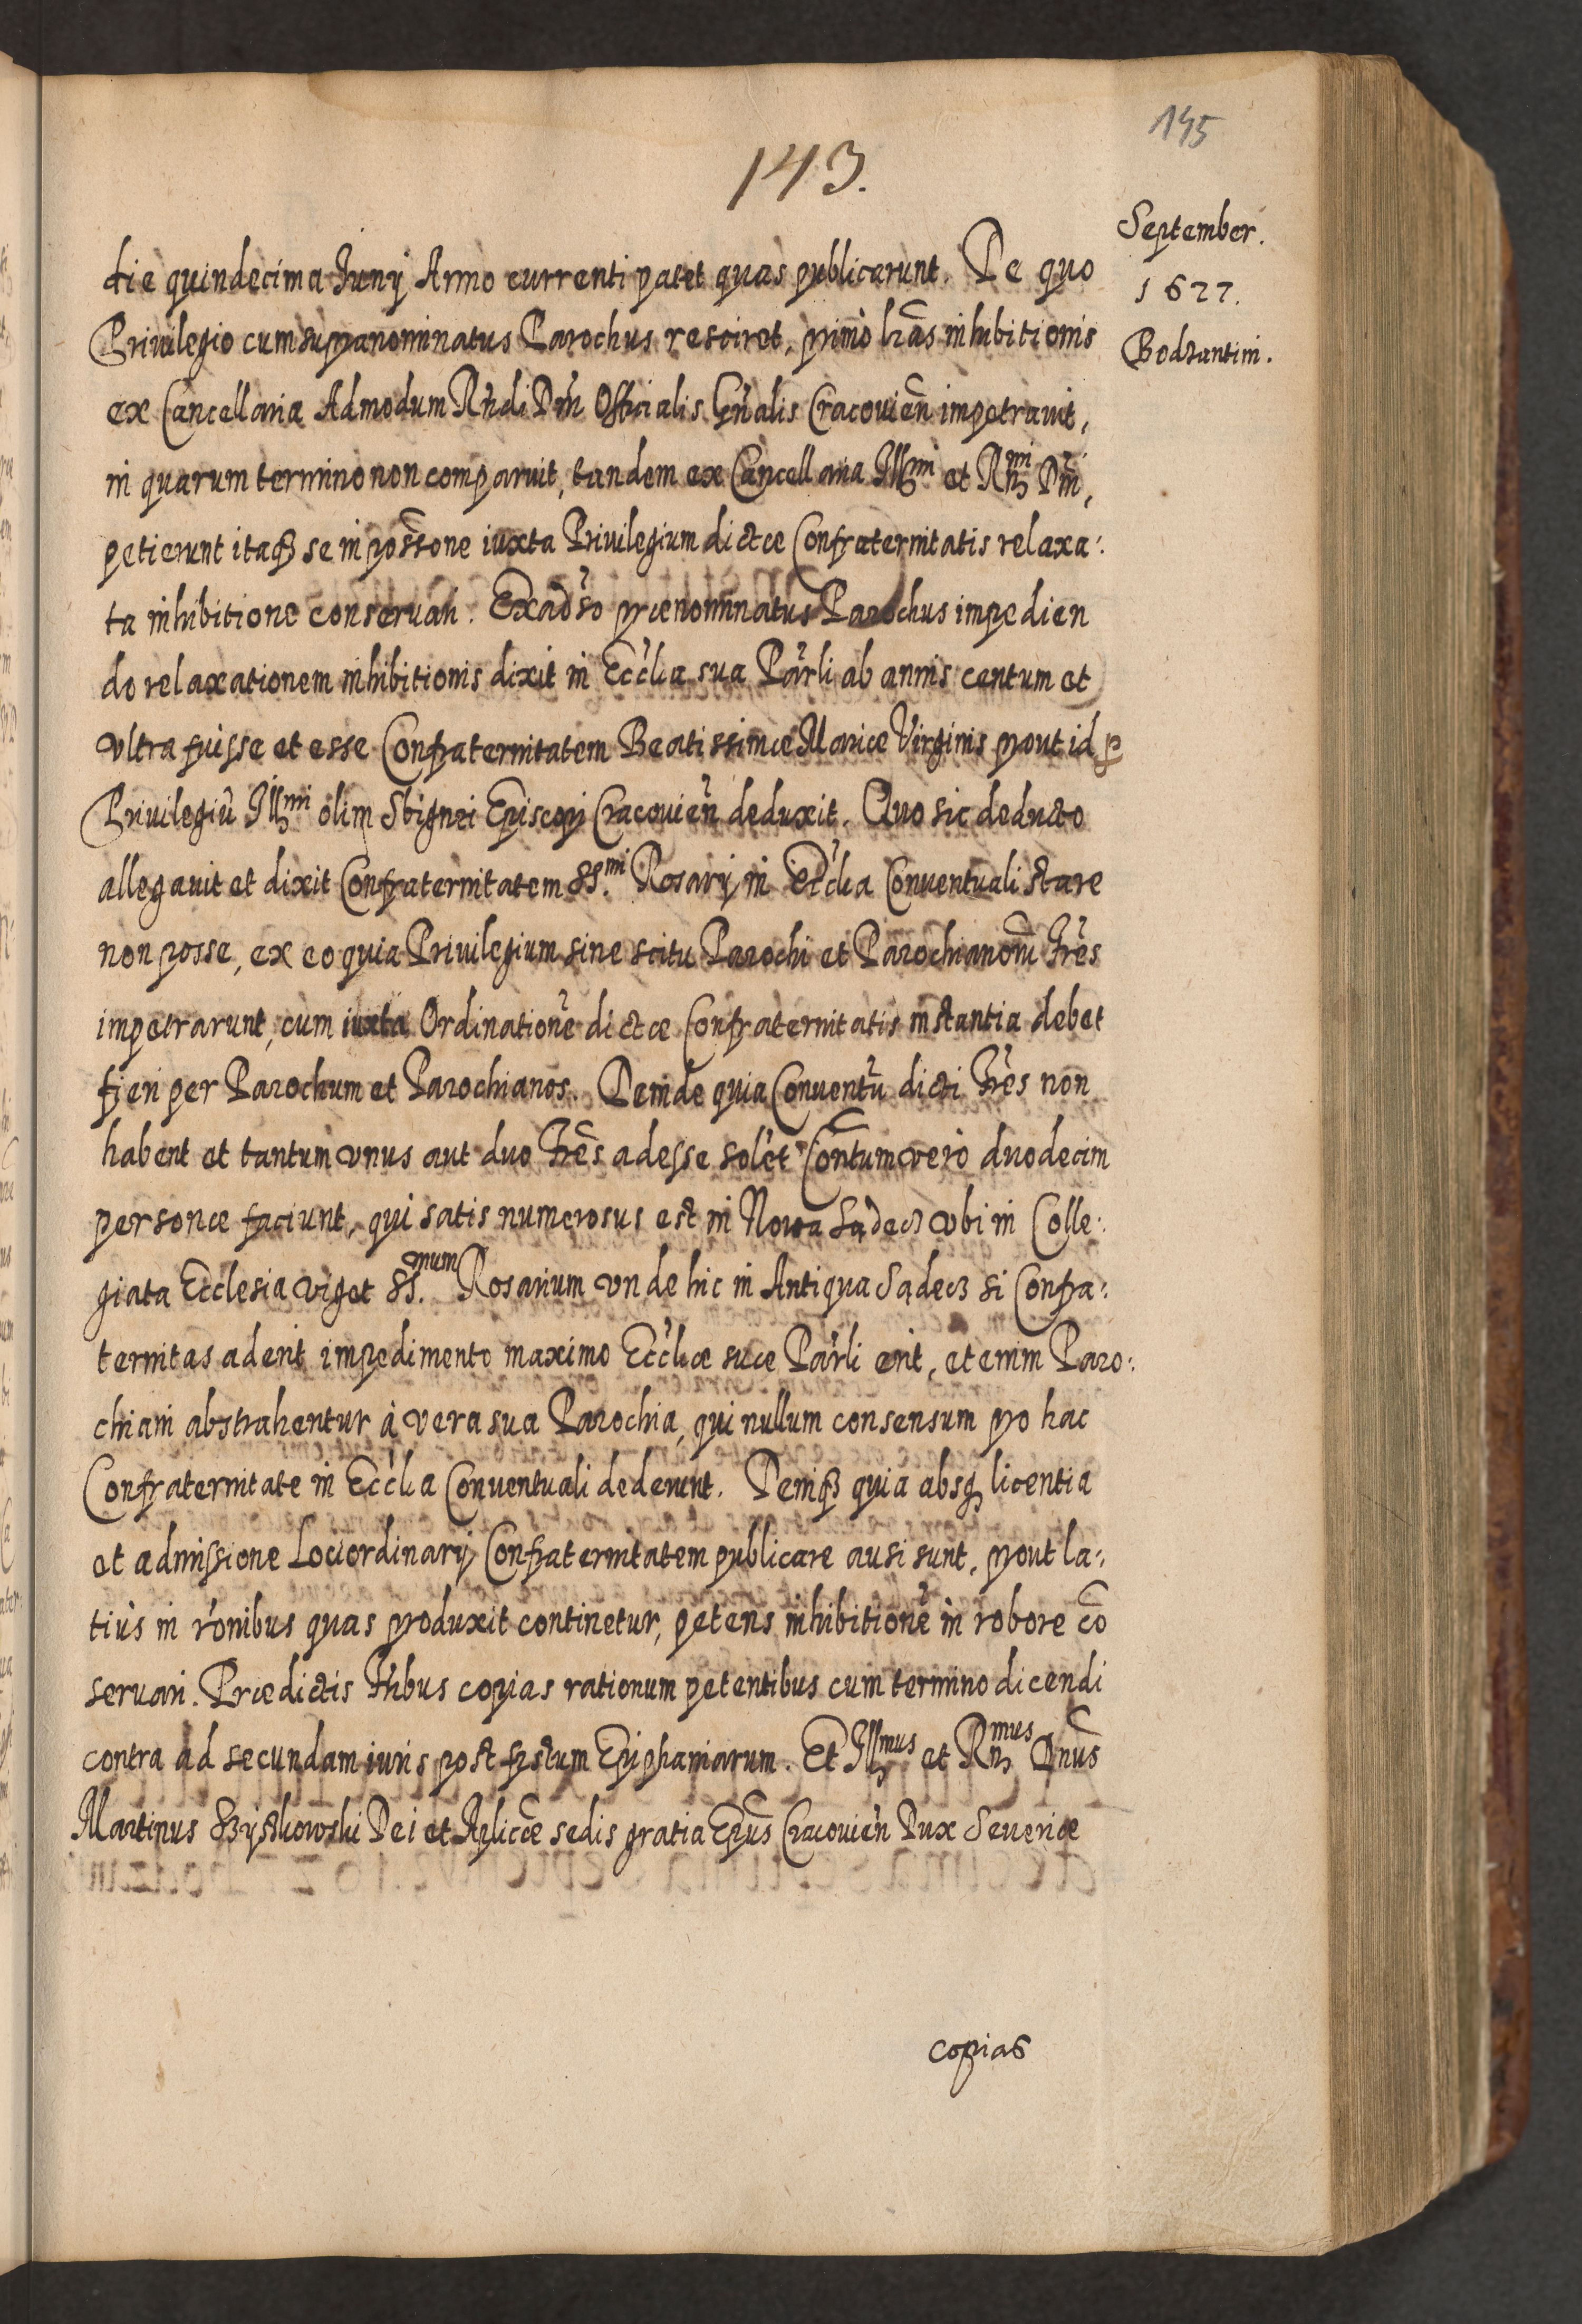 145
143.
September.
1627.
Bodzantini.
die quindecima Iunÿ Anno currenti patet quas publicarunt. De quo
Priuilegio cum supranominatus Parochus resciret, primò lr̃as inhibitionis
ex Cancellaria Admodum Rñdi Dñi Officialis Gñalis Cracouien̄ impetrauit,
in quarum termino non comparuit, tandem ex Cancellaria Illmi et Rmi Dñi,
petierunt itaqȝ se in posśone iuxta Priuilegium dictæ Confraternitatis relaxa:
ta inhibitione conseruari. Exaduŝo prænominatus Parochus impedien
do relaxationem inhibitionis dixit in Eccl̃ia sua Par̃li ab annis centum et
vltra fuisse et esse Confraternitatem Beatissimæ Mariæ Virginis prout id ꝑ
Priuilegiū Illmi olim Sbignei Episcopi Cracouien̄ deduxit. Quo sic deducto
allegauit et dixit Confraternitatem SS.mi Rosarÿ in Eccl̃ia Conuentuali stare
non posse, ex eo quia Priuilegium sine scitu Parochi et Parochianorū Fr̃es
impetrarunt, cum iuxta Ordinationē dictæ Confraternitatis instantia debet
fieri per Parochum et Parochianos. Deinde quia Conuentū dicti Fr̃es non
habent et tantum vnus aut duo Fr̃es adesse solet Conũtum verò duodecim
personæ faciunt, qui satis numerosus est in Nowa Sądecz vbi in Colle:
giata Ecclesia viget SS.mum Rosarium vnde hic in Antiqua Sądecz si Confra:
ternitas aderit impedimento maximo Eccl̃iæ suæ Par̃li erit, etenim Paro:
chiani abstrahentur à vera sua Parochia, qui nullum consensum pro hac
Confraternitate in Eccl̃ia Conuentuali dederunt. Deniqȝ quia absqȝ licentia
et admissione Lociordinarÿ Confraternitatem publicare ausi sunt, prout la:
tiùs in rōnibus quas produxit continetur, petens inhibitionē in robore cō
seruari. Prædictis Fr̃ibus copias rationum petentibus cum termino dicendi
contra ad secundam iuris post festum Epiphaniarum. Et Illmus et Rmus Dnũs
Martinus Szyszkowski Dei et Aplicæ sedis gratia Epũs Cracouien̄ Dux Seueriæ
copias